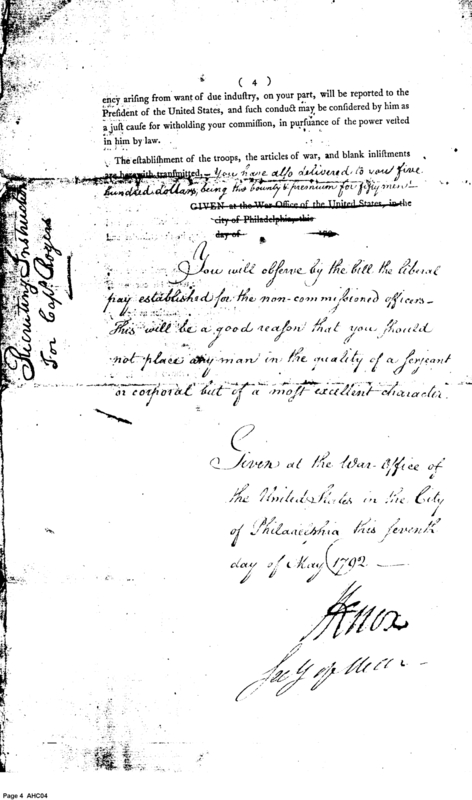 ( 4 )
ency arising from want of due industry, on your part, will be reported to the
President of the United States, and such conduct may be considered by him as
a just cause for witholding your commission, in pursuance of the power vested
in him by law.
The establishment of the troops, the articles of war, and blank inlistments
are herewith transmitted. – You have also delivered to you five
hundred dollars, being the bounty & premium for fifty men –
GIVEN at the War Office of the United States, in the
city of Philadelphia, this
day of
You will observe by the bill the liberal
pay established for the non-commissioned officers –
This will be a good reason that you should
not place any man in the quality of a serjeant
or corporal but of a most excellent character.
Given at the War-Office of
the United States in the City
of Philadelphia this seventh
day of May 1792 —
HKnox
Secy of War –
Recruiting Instructions
For Capt Rogers
Page 4 AHC04